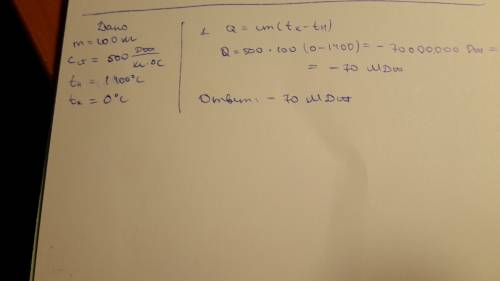 Дано
m = 100 кг
c = 500 Дж/кг·°C
tн = 1400°C
tк = 0°C
1 Q = cm(tк - tн)
Q = 500 · 100 (0-1400) = - 70000000 Дж =
= - 70 МДж
Ответ: - 70 МДж